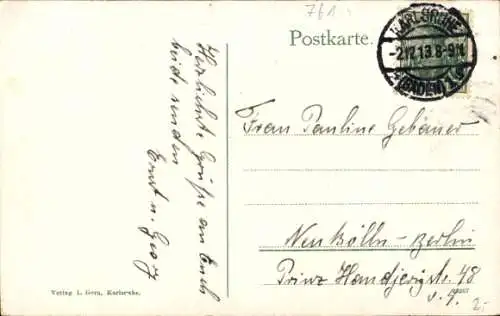 761.
Postkarte.
KARLSRUHE
-2.12.13.8-9N.
(BADEN)
Herzlichste Grüße an Euch
beide senden
Ernst u. Georg
Frau Pauline Gebauer
Neukölln-Berlin
Prinz Handjerystr. 48
Verlag L. Gern, Karlsruhe.
2,-